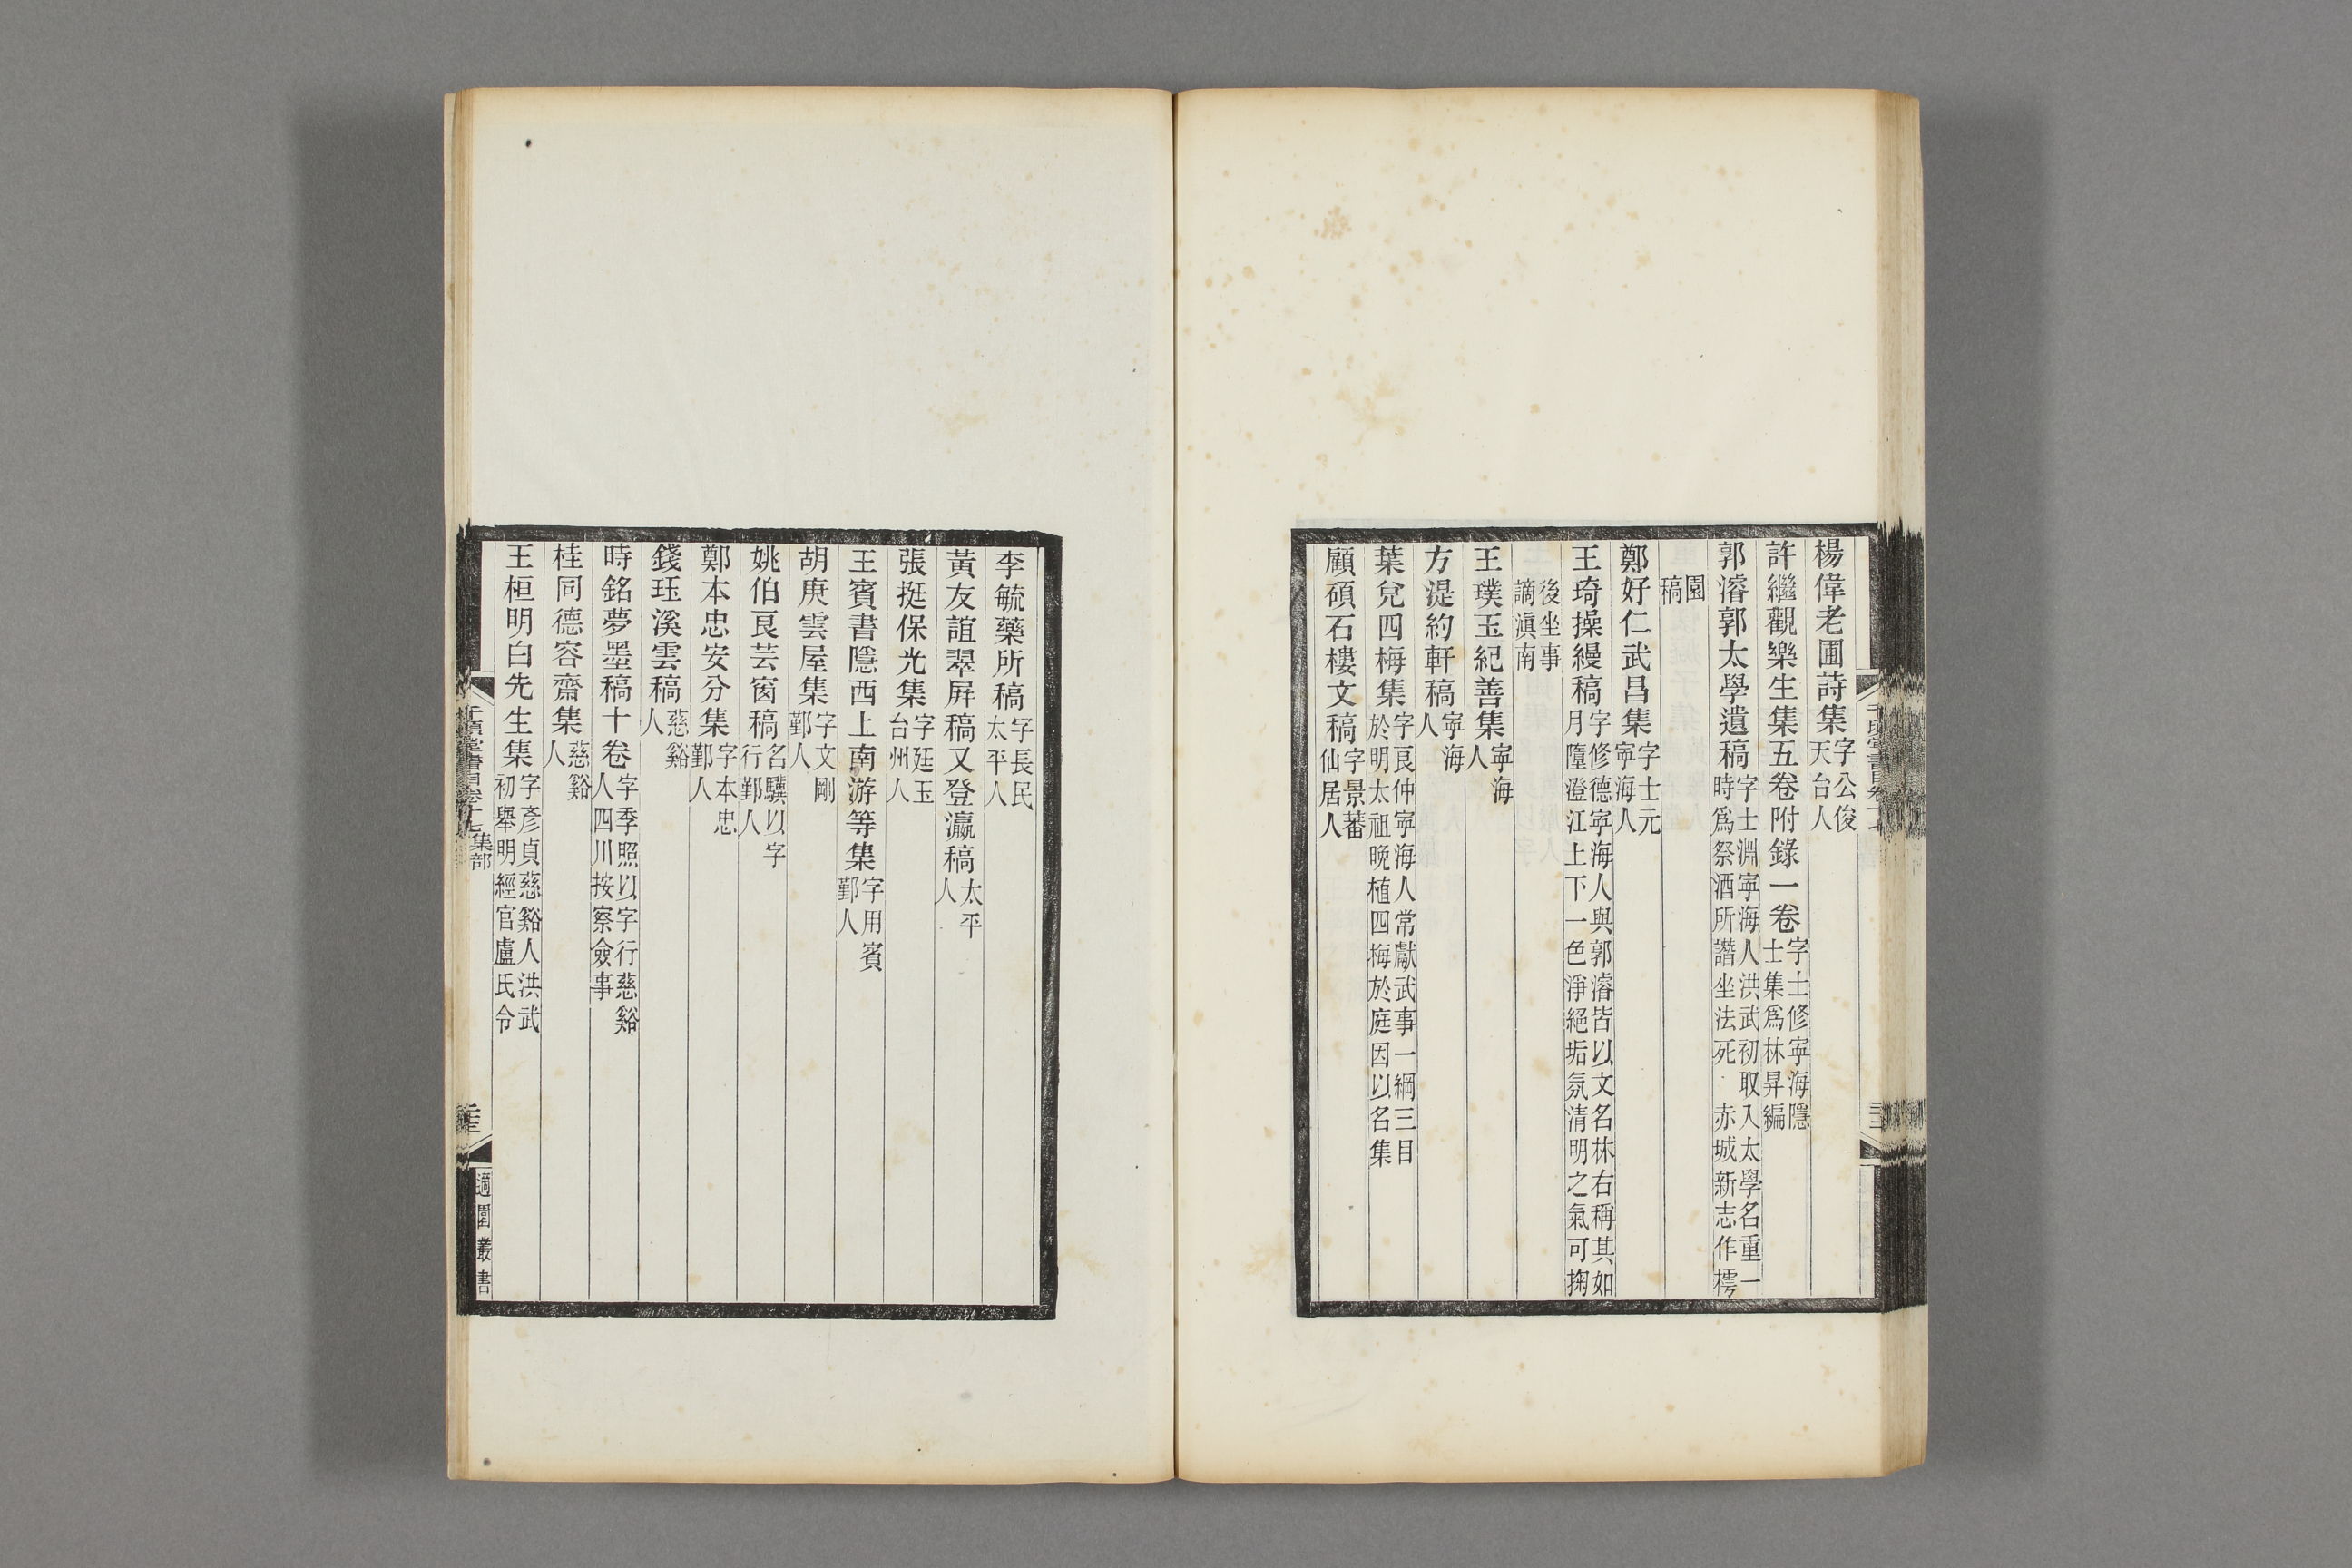 楊偉老圃詩集字公俊天台人
許繼觀樂生集五卷附錄一卷字士修寧海隱士集爲林昇編
郭濬郭太學遺稿字士淵寧海人洪武初取入太學名重一時爲祭酒所譖坐法死 赤城新志作樗
園稿
鄭好仁武昌集字士元寧海人
王琦操縵稿字修德寧海人與郭濬皆以文名林右稱其如月墮澄江上下一色淨絕垢氛清明之氣可掬
後坐事謫滇南
王璞玉紀善集寧海人
方湜約軒稿寧海人
葉兌四梅集字良仲寧海人常獻武事一綱三目於明太祖晚植四梅於庭因以名集
顧碩石樓文稿字景蕃仙居人
李毓藥所稿字長民太平人
黃友誼翠屛稿又登瀛稿太平人
張挺保光集字廷玉台州人
王賓書隱西上南游等集字用賓鄞人
胡庚雲屋集字文剛鄞人
姚伯良芸窗稿名驥以字行鄞人
鄭本忠安分集字本忠鄞人
錢珏溪雲稿慈谿人
時銘夢墨稿十卷字季照以字行慈谿人四川按察僉事
桂同德容齋集慈谿人
王桓明白先生集字彥貞慈谿人洪武初舉明經官盧氏令
千頃堂書目卷十七集部
適園叢書